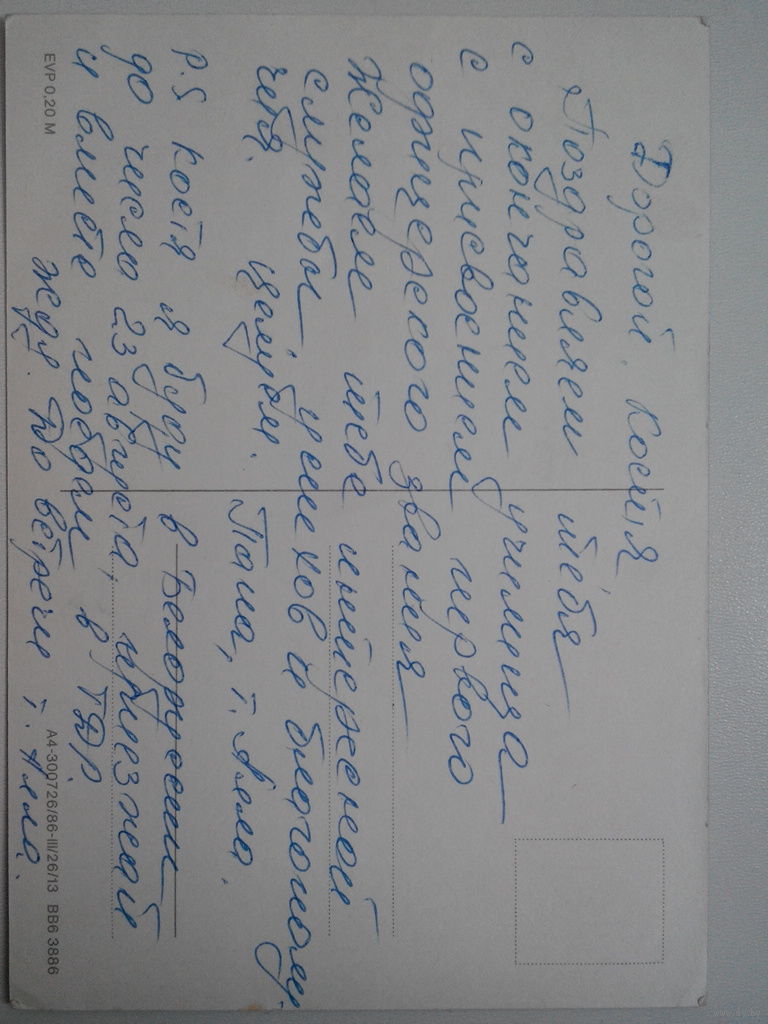 Дорогой Костя
Поздравляем тебя
с окончанием училища
с присвоением первого
офицерского звания
Желаем тебе интересной
службы успехов и благополу
чия. Целуем. Папа, т. Алла.
P.S Костя я буду в Белоруссии
до число 23 августа, приезжай
и вместе поедем в ГДР.
жду. До встречи т. Алла.
EVP 0,20 M
A4-300726/86-III/26/13 BB6 3886